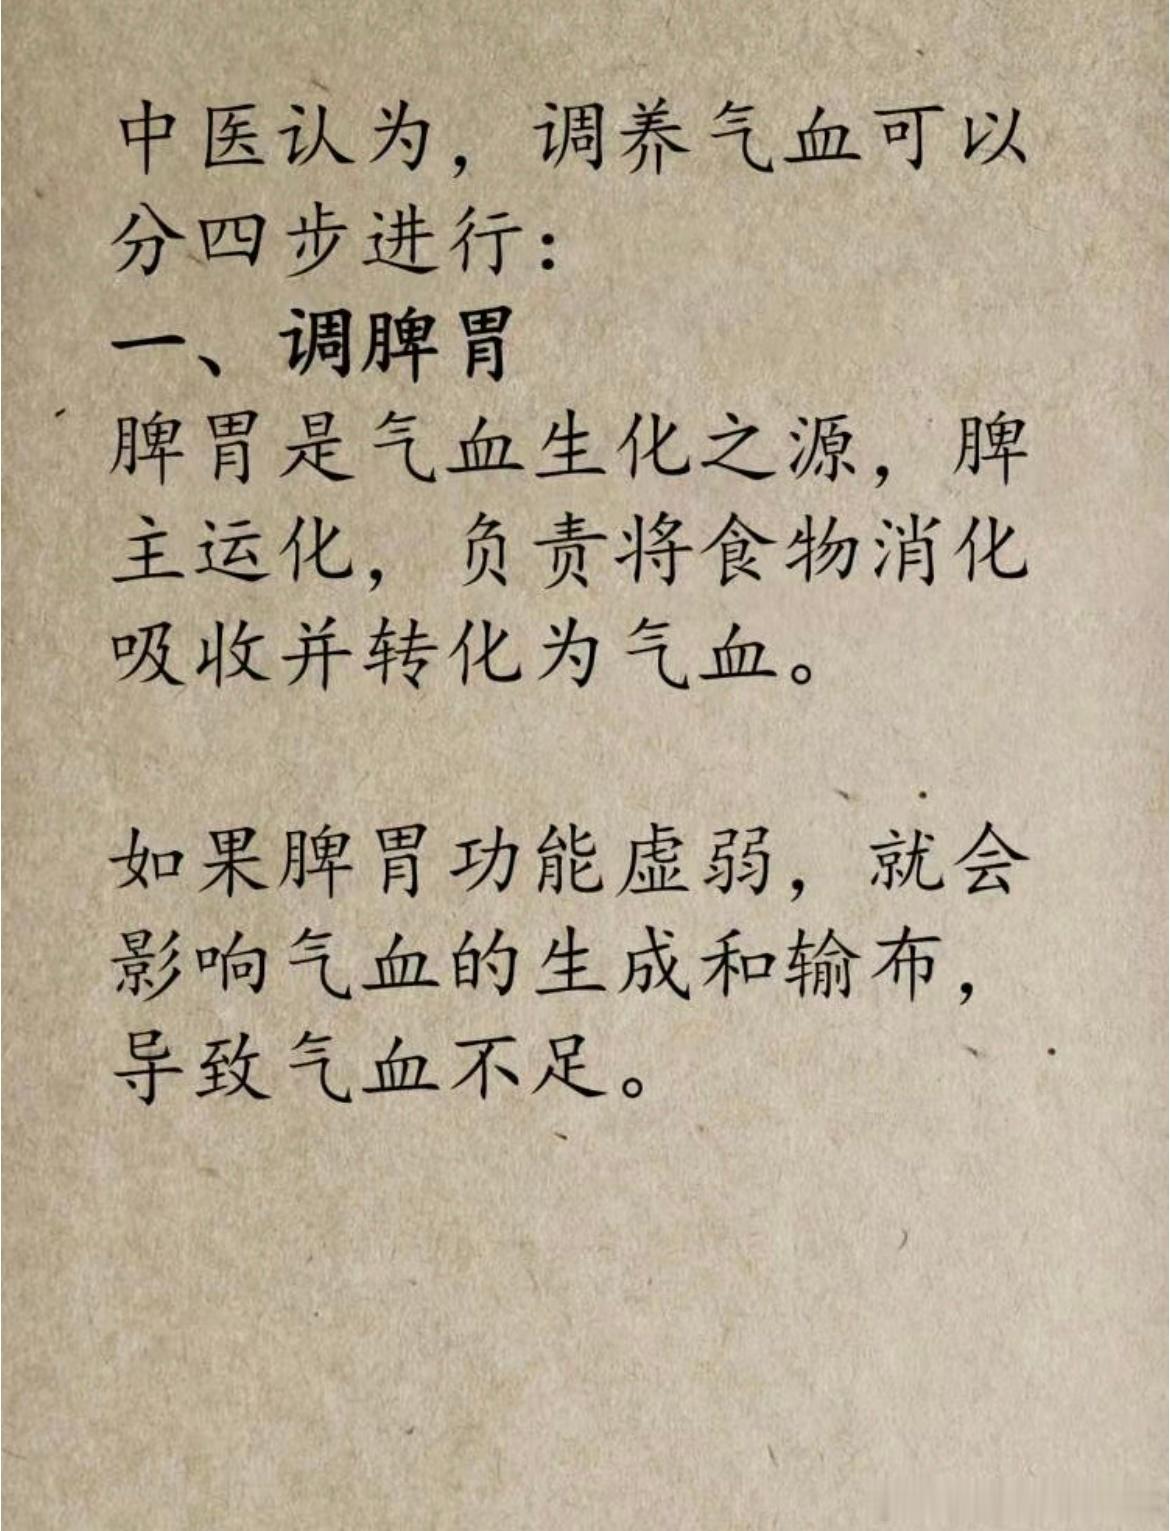 中医认为，调养气血可以
分四步进行：
一、调脾胃
脾胃是气血生化之源，脾
主运化，负责将食物消化
吸收并转化为气血。
如果脾胃功能虚弱，就会
影响气血的生成和输布，
导致气血不足。